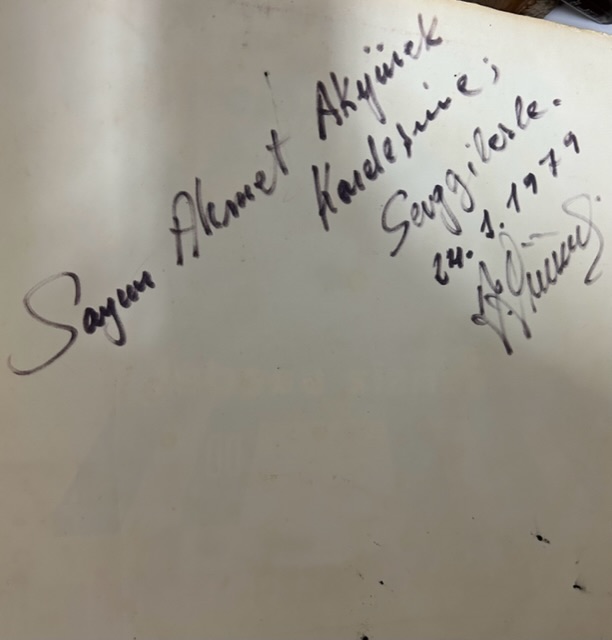 Sayın Ahmet Akyürek
Kardeşime;
Sevgilerle.
24.1.1979